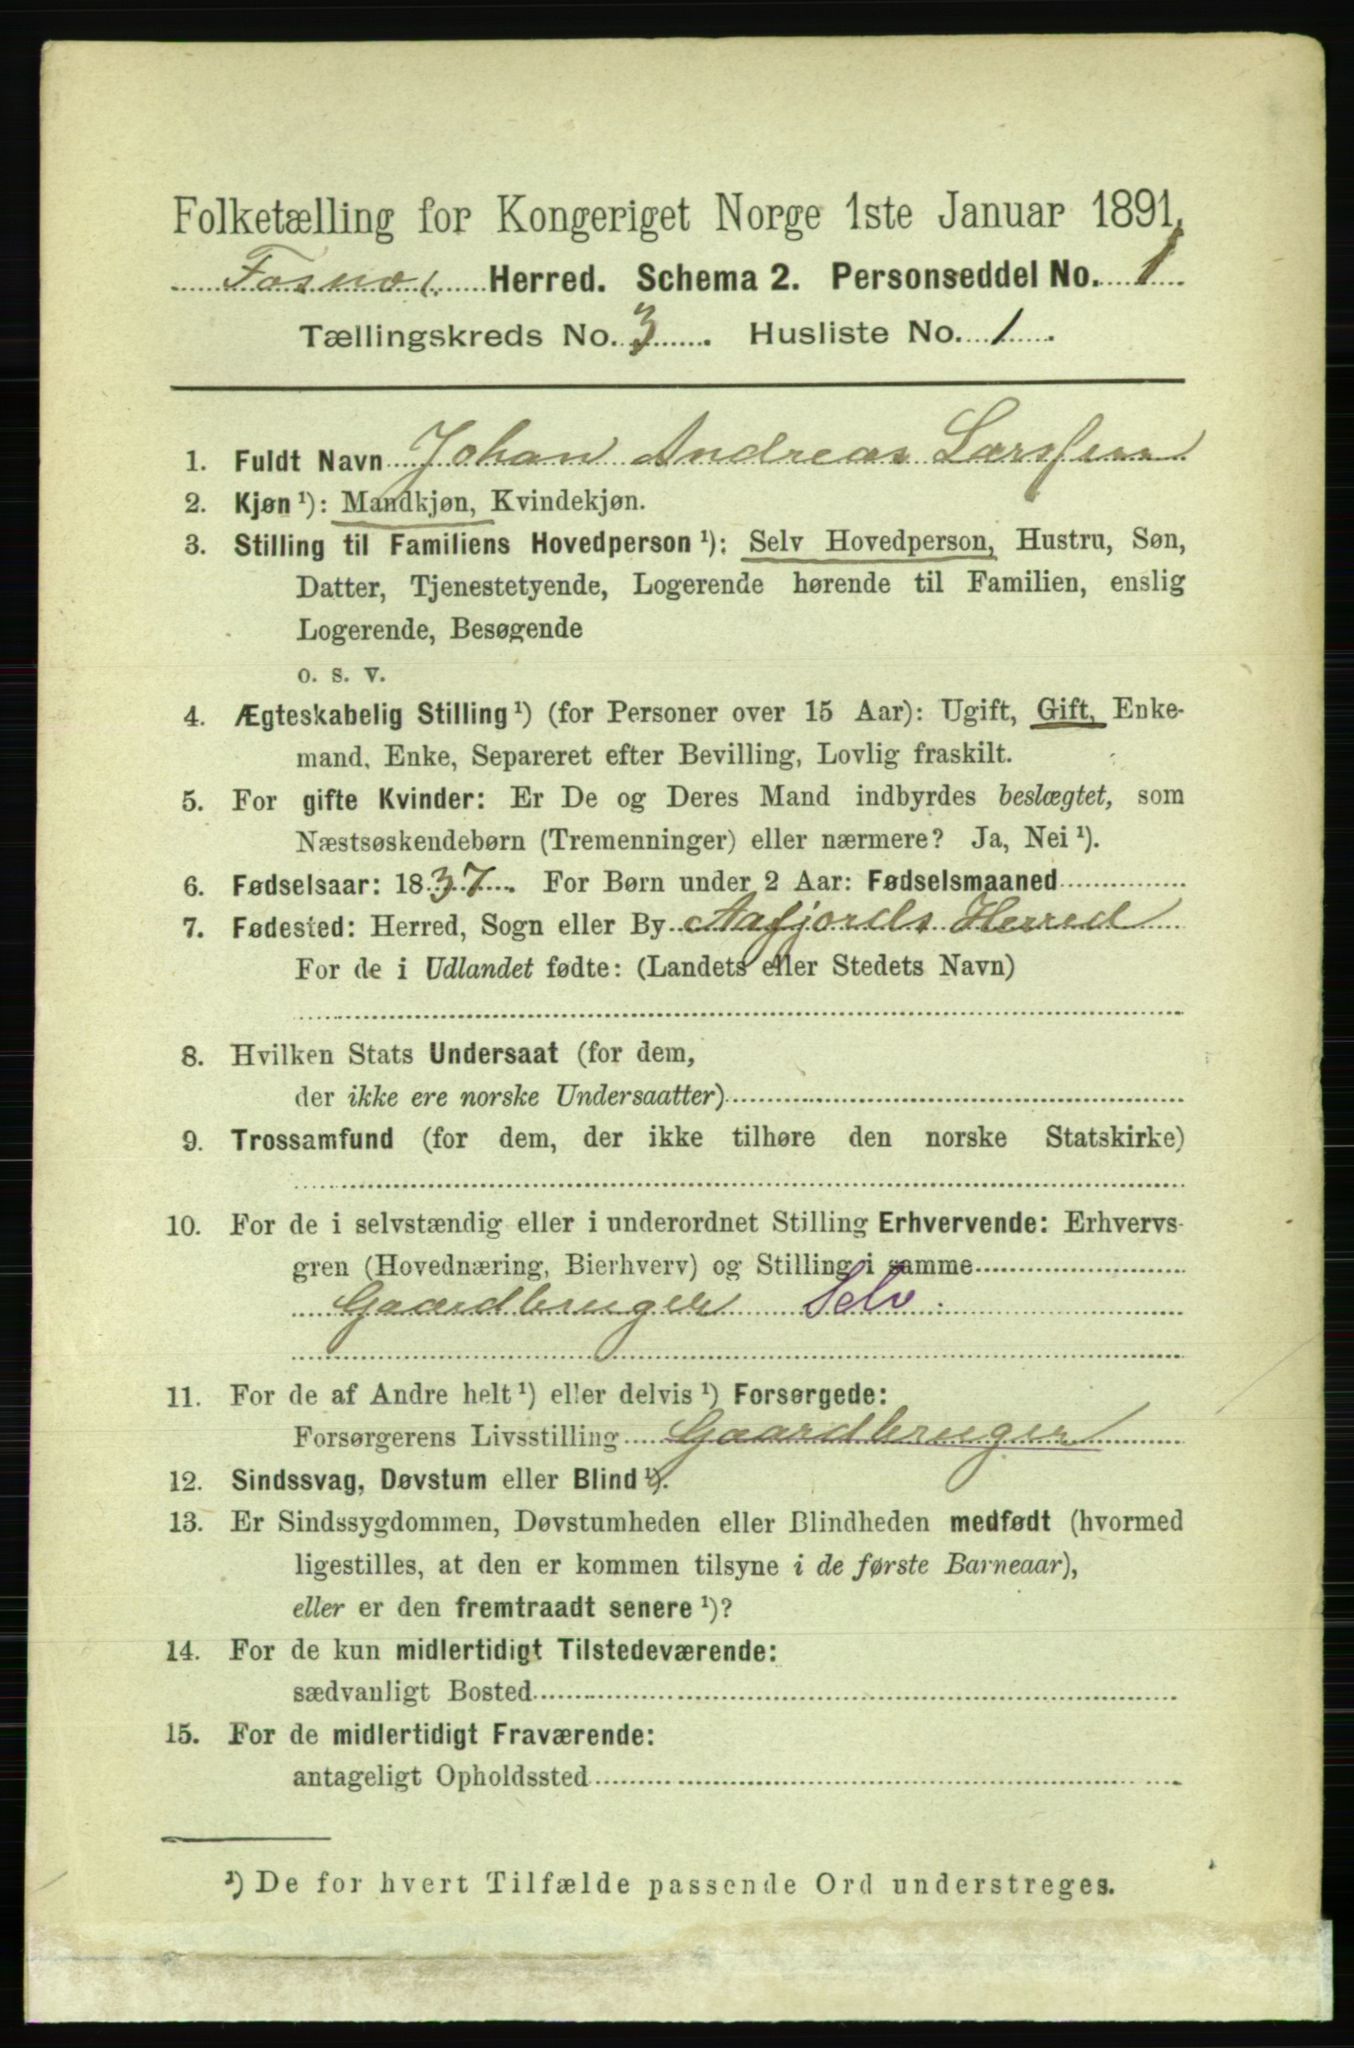 Folketælling for Kongeriget Norge 1ste Januar 1891.
Fosnæs Herred. Schema 2. Personseddel No. 1
Tællingskreds No. 3. Husliste No. 1.
1. Fuldt Navn Johan Andreas Larssen
2. Kjøn ¹): Mandkjøn, Kvindekjøn.
3. Stilling til Familiens Hovedperson ¹): Selv Hovedperson, Hustru, Søn,
Datter, Tjenestetyende, Logerende hørende til Familien, enslig
Logerende, Besøgende
o. s. v.
4. Ægteskabelig Stilling ¹) (for Personer over 15 Aar): Ugift, Gift, Enke-
mand, Enke, Separeret efter Bevilling, Lovlig fraskilt.
5. For gifte Kvinder: Er De og Deres Mand indbyrdes beslægtet, som
Næstsøskendebørn (Tremenninger) eller nærmere? Ja, Nei ¹).
6. Fødselsaar: 1837. For Børn under 2 Aar: Fødselsmaaned
7. Fødested: Herred, Sogn eller By Aafjords Herred
For de i Udlandet fødte: (Landets eller Stedets Navn)
8. Hvilken Stats Undersaat (for dem,
der ikke ere norske Undersaatter)
9. Trossamfund (for dem, der ikke tilhøre den norske Statskirke)
10. For de i selvstændig eller i underordnet Stilling Erhvervende: Erhvervs-
gren (Hovednæring, Bierhverv) og Stilling i samme
Gaardbruger Selv.
11. For de af Andre helt ¹) eller delvis ¹) Forsørgede:
Forsørgerens Livsstilling Gaardbruger
12. Sindssvag, Døvstum eller Blind ¹).
13. Er Sindssygdommen, Døvstumheden eller Blindheden medfødt (hvormed
ligestilles, at den er kommen tilsyne i de første Barneaar),
eller er den fremtraadt senere ¹)?
14. For de kun midlertidigt Tilstedeværende:
sædvanligt Bosted
15. For de midlertidigt Fraværende:
antageligt Opholdssted
¹) De for hvert Tilfælde passende Ord understreges.